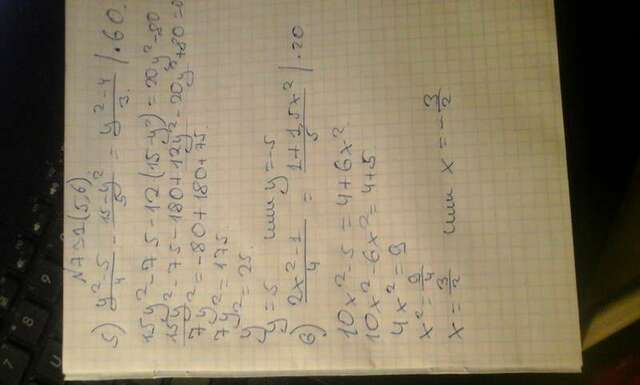 N 721(5,6)
5) (y²-5)/4 - (15-y²)/5 = (y²-4)/3 | ·60.
15y²-75-12(15-y²)=20y²-80
15y²-75-180+12y²-20y²+80=0
7y²=-80+180+75.
7y²=175.
y²=25.
y=5 или y=-5
6) (2x²-1)/4 = (1+1,5x²)/5 | ·20
10x²-5=4+6x².
10x²-6x²=4+5
4x²=9
x²=9/4
x=3/2 или x=-3/2